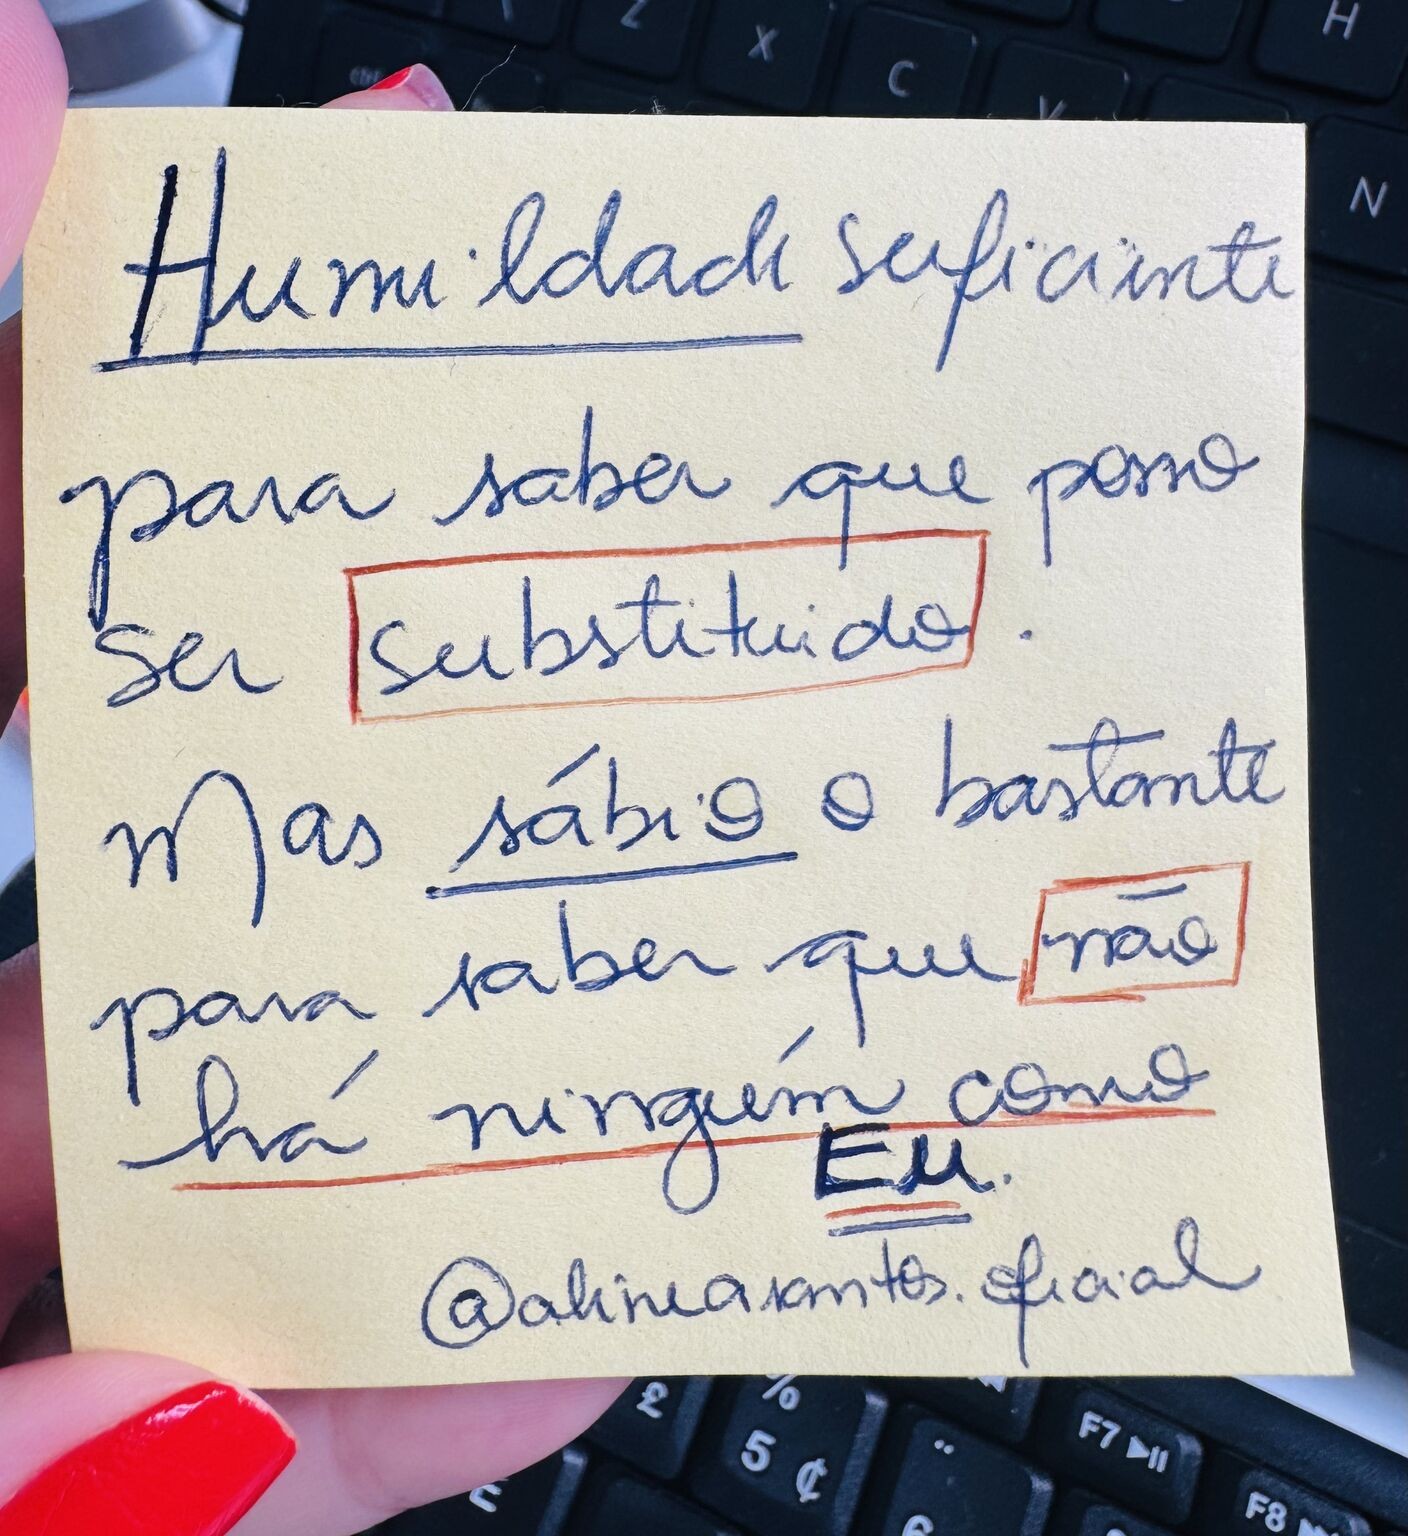 Z
X
C
V
H
N
Humildade suficiente
para saber que posso
ser substituido.
Mas sábio o bastante
para saber que não
há ninguém como
EU.
@alinearantes.oficial
£
%
5 ¢
¨
6
E
F7
F8